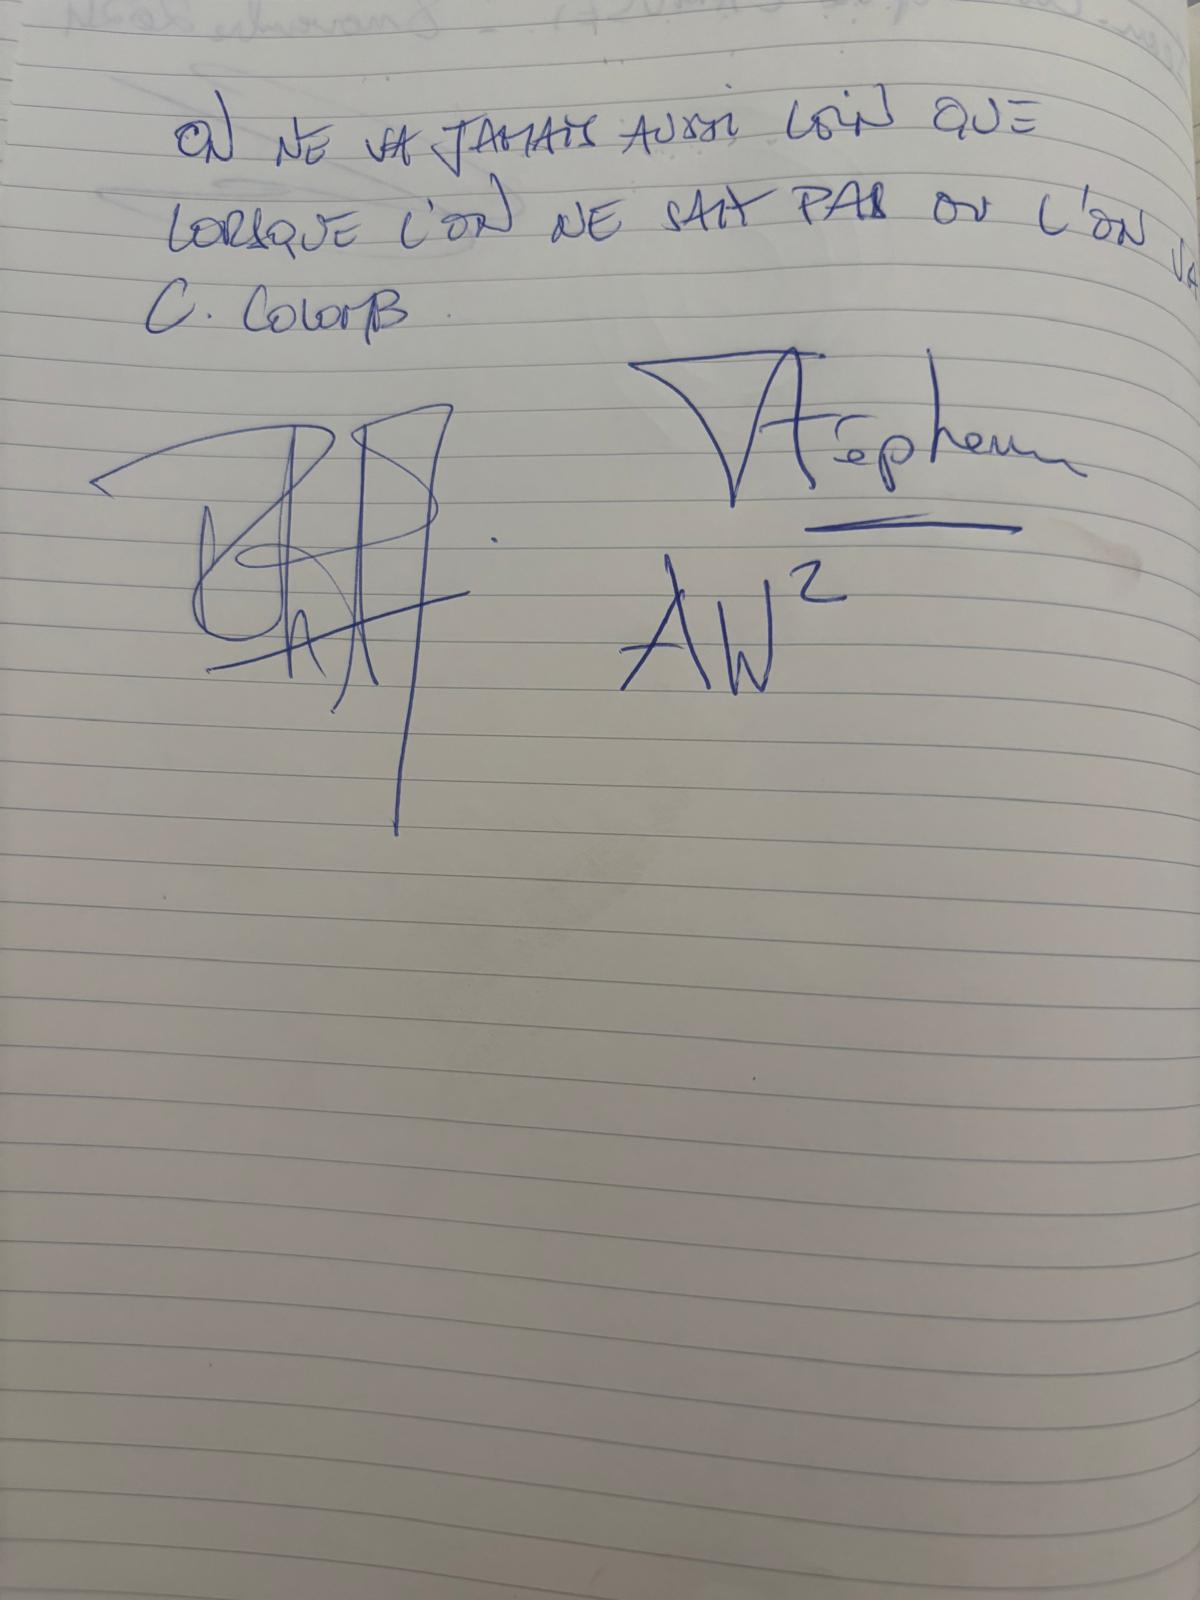 ON NE VA JAMAIS AUSSI LOIN QUE
LORSQUE L'ON NE SAIT PAS OU L'ON VA
C. COLOMB.
Stéphane
AW²